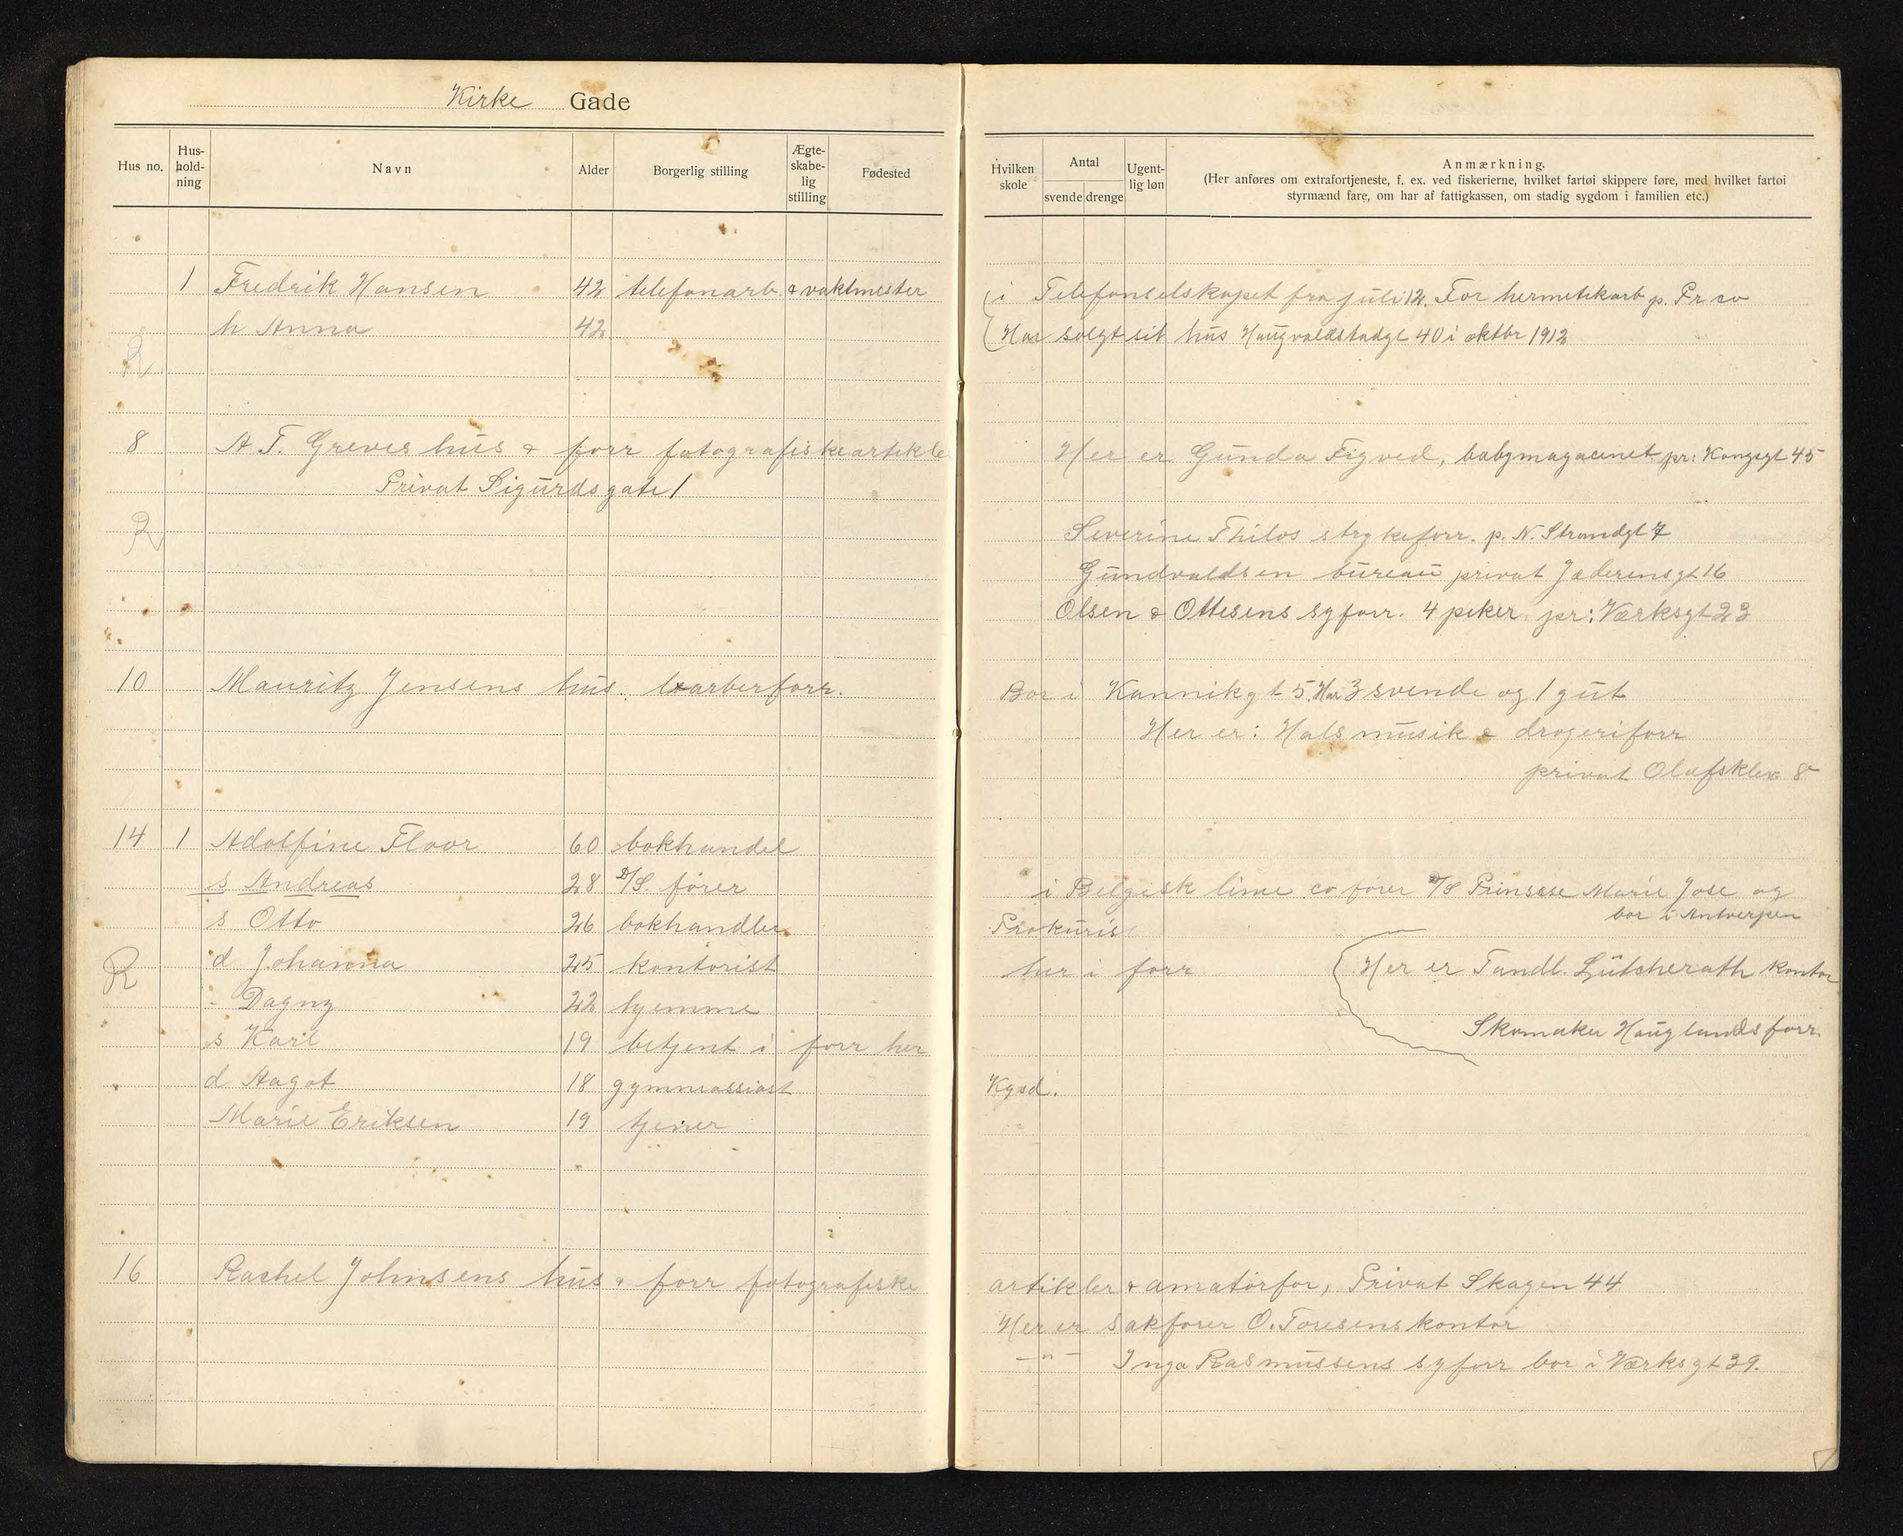 Kirke Gade
Hus no. Hus-hold-ning Navn Alder Borgerlig stilling Ægte-skabe-lig stilling Fødested
1 Fredrik Hansen 42 telefonarb. & vaktmester
h Anna 42
R
8 A F. Greves hus & forr fotografiske artikle
Privat Sigurdsgate 1
R
10 Mauritz Jensens hus. barberforr.
14 1 Adolfine Floor 60 bokhandel
s Andreas 28 D/S. fører
s Otto 26 bokhandler
R d Johanna 25 kontorist
" Dagny 22 hjemme
s Karl 19 betjent i forr her
d Aagot 18 gymnassiast
Marie Eriksen 19 tjener
16 Rachel Johnsens hus & forr fotografiske
Hvilken skole Antal svende drenge Ugent-lig løn Anmærkning.
(Her anføres om extrafortjeneste, f. ex. ved fiskerierne, hvilket fartøi skippere føre, med hvilket fartøi
styrmænd fare, om har af fattigkassen, om stadig sygdom i familien etc.)
i Telefonselskapet fra juli 12. For hermetikarb p. Pr co
Har solgt sit hus Haugvaldstadgt 40 i oktbr 1912
Her er Gunda Figved, babymagacinet pr: Kongsgt 45
Severine Thilos strykeforr. p. N. Strandgt 7
Gundvaldsen bureau privat Jæderensgt 16
Olsen & Ottesens syforr. 4 piker pr: Værksgt 23
Bor i Kannikgt 5. Har 3 svende og 1 gut
Her er: Hals musik & drogeriforr
privat Olafsklev 8
i Belgisk line co fører D/S Prinsese Marie Jose og
bor i Antverpen
Prokuris
her i forr Her er Tandl. Lütcherath kontor
Skomaker Hauglands forr
Kgsd.
artikler & amatørfor, Privat Skagen 44
Her er Sakfører O. Toresens kontor
—"— Inga Rasmussens syforr bor i Værksgt 39.